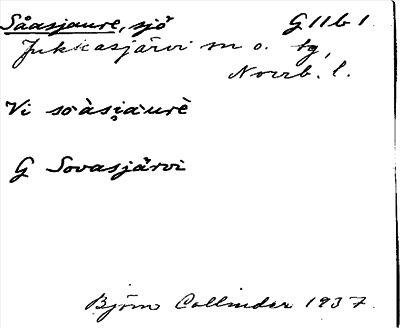 Såasjaure, sjö G 11 b 1
Jukkasjärvi sn o. tg,
Norrb. l.
Vi soàsi̯aurè
G Sovasjärvi
Björn Collinder 1937.